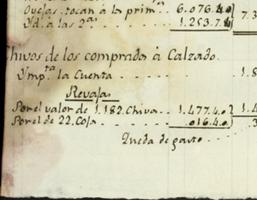 Ovejas, tocan à la prim.ª .. 6.076.4.0
Yd. à las 2.ª . . . 1.253.7.
7.3
Chivos de los comprada à Calzado.
Ymp.ta la Cuenta . . . . . 1.8
Revaja
Por el valor de 1.182. Chiva . . 1.477.4.0 1.4
Por el de 22. Coja . . . . . 016.4.0
Queda de gasto . . .